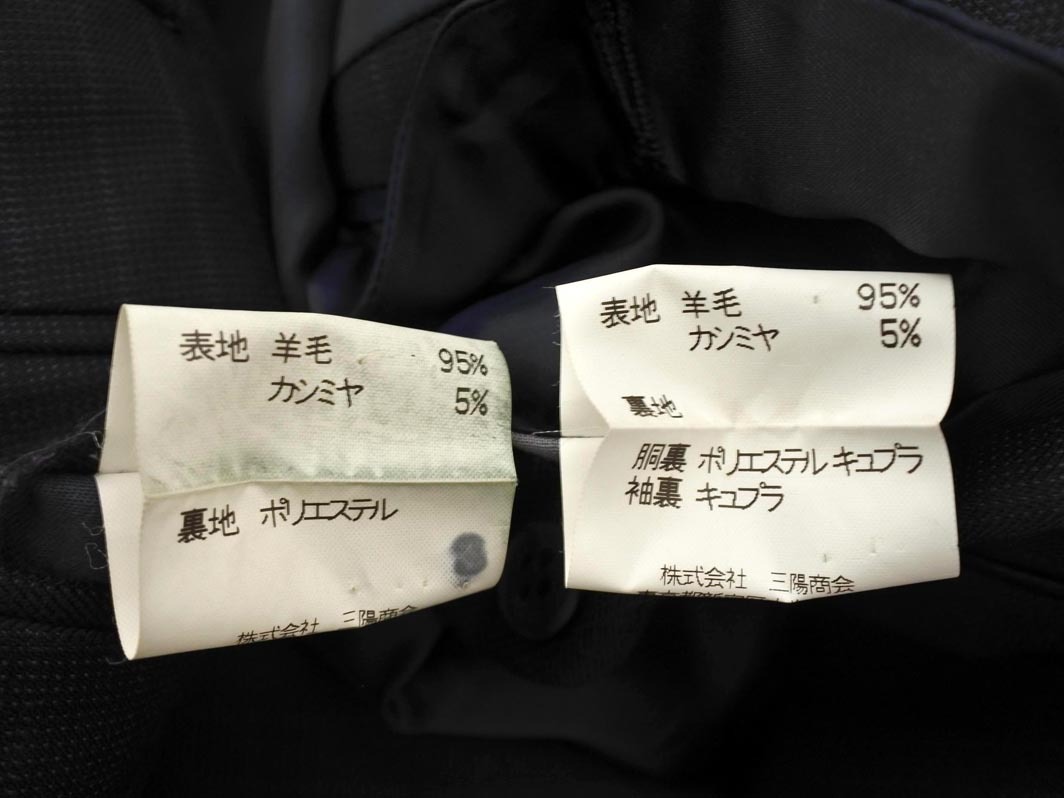 表地 羊毛 95%
カシミヤ 5%
裏地 ポリエステル
株式会社 三陽商会
表地 羊毛 95%
カシミヤ 5%
裏地
胴裏 ポリエステル キュプラ
袖裏 キュプラ
株式会社 三陽商会